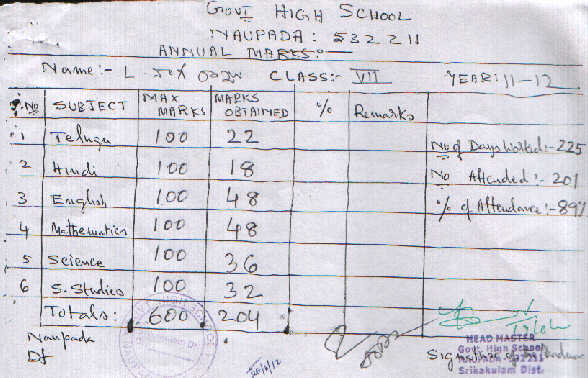 GOVT HIGH SCHOOL
NAUPADA: 532211
ANNUAL MARKS:-
Name:- L CLASS:- VII YEAR: 11-12
S.No SUBJECT MAX MARKS MARKS OBTAINED % Remarks
1 Telugu 100 22
2 Hindi 100 18
3 English 100 48
4 Mathematics 100 48
5 Science 100 36
6 S. Studies 100 32
Totals: 600 204
No of Days :- 225
No Attended:- 201
% of Attendance:- 89%
Naupada
Dt
HEAD MASTER
Govt. High School
NAUPADA - 532211
Srikakulam Dist.
Signature of the